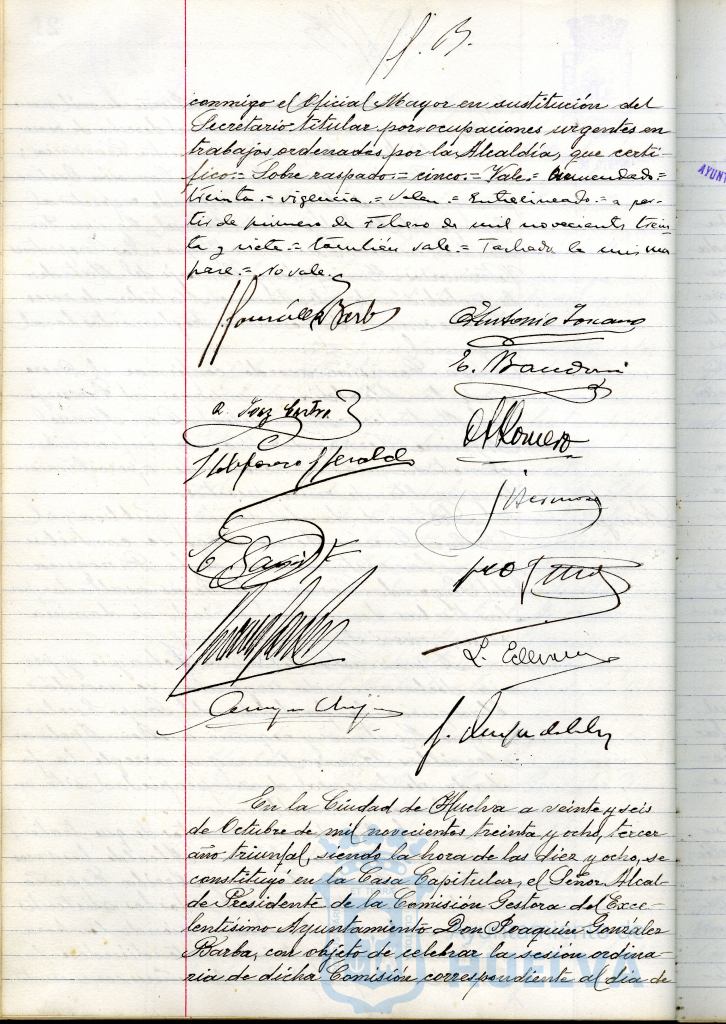 conmigo el Oficial Mayor en sustitución del
Secretario titular por ocupaciones urgentes en
trabajos ordenados por la Alcaldía, que certi-
fico.= Sobre raspado = cinco.= Vale.= Enmendado =
treinta.= vigencia.= Valen.= Entrelineado.= a par-
tir de primero de Febrero de mil novecientos trein-
ta y siete.= también vale.= Tachado la misma
frase.= No vale.
J. González Barba
Antonio Toscano
E. Baudoin
A. Romero
J. Hermoso
En la Ciudad de Huelva a veinte y seis
de Octubre de mil novecientos treinta y ocho, tercer
año triunfal, siendo la hora de las diez y ocho, se
constituyó en la Casa Capitular, el Señor Alcal-
de Presidente de la Comisión Gestora del Exce-
lentísimo Ayuntamiento Don Joaquín González
Barba, con objeto de celebrar la sesión ordina-
ria de dicha Comisión correspondiente al día de
AYUNT